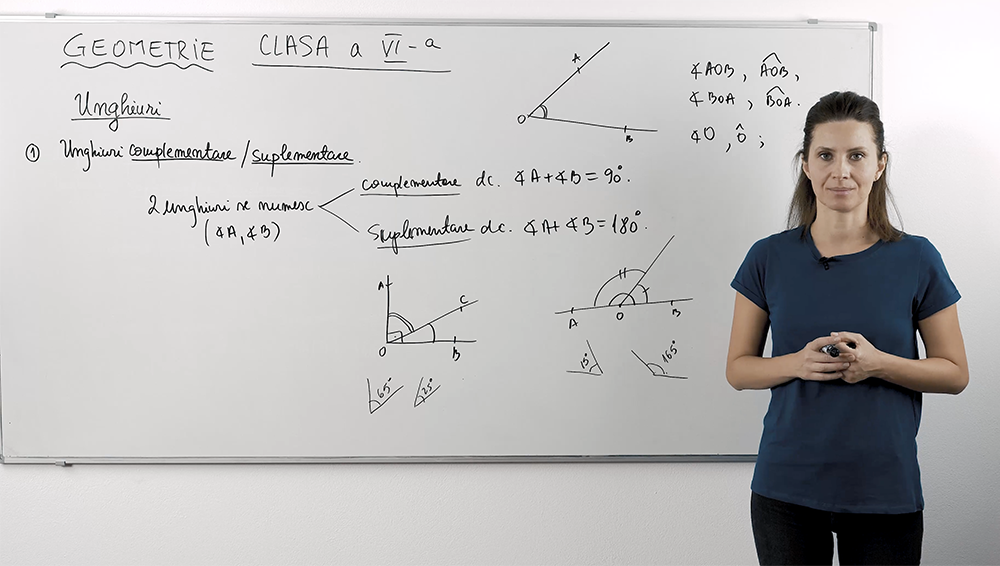 GEOMETRIE CLASA a VI-a
Unghiuri
① Unghiuri complementare / suplementare.
2 unghiuri se numesc
(∢A, ∢B)
complementare dc. ∢A+∢B=90°.
Suplementare dc. ∢A+∢B=180°.
A
O
B
∢AOB, \widehat{AOB},
∢BOA, \widehat{BOA}.
∢O, Ô;
A
C
O
B
65°
25°
A
O
B
15°
165°